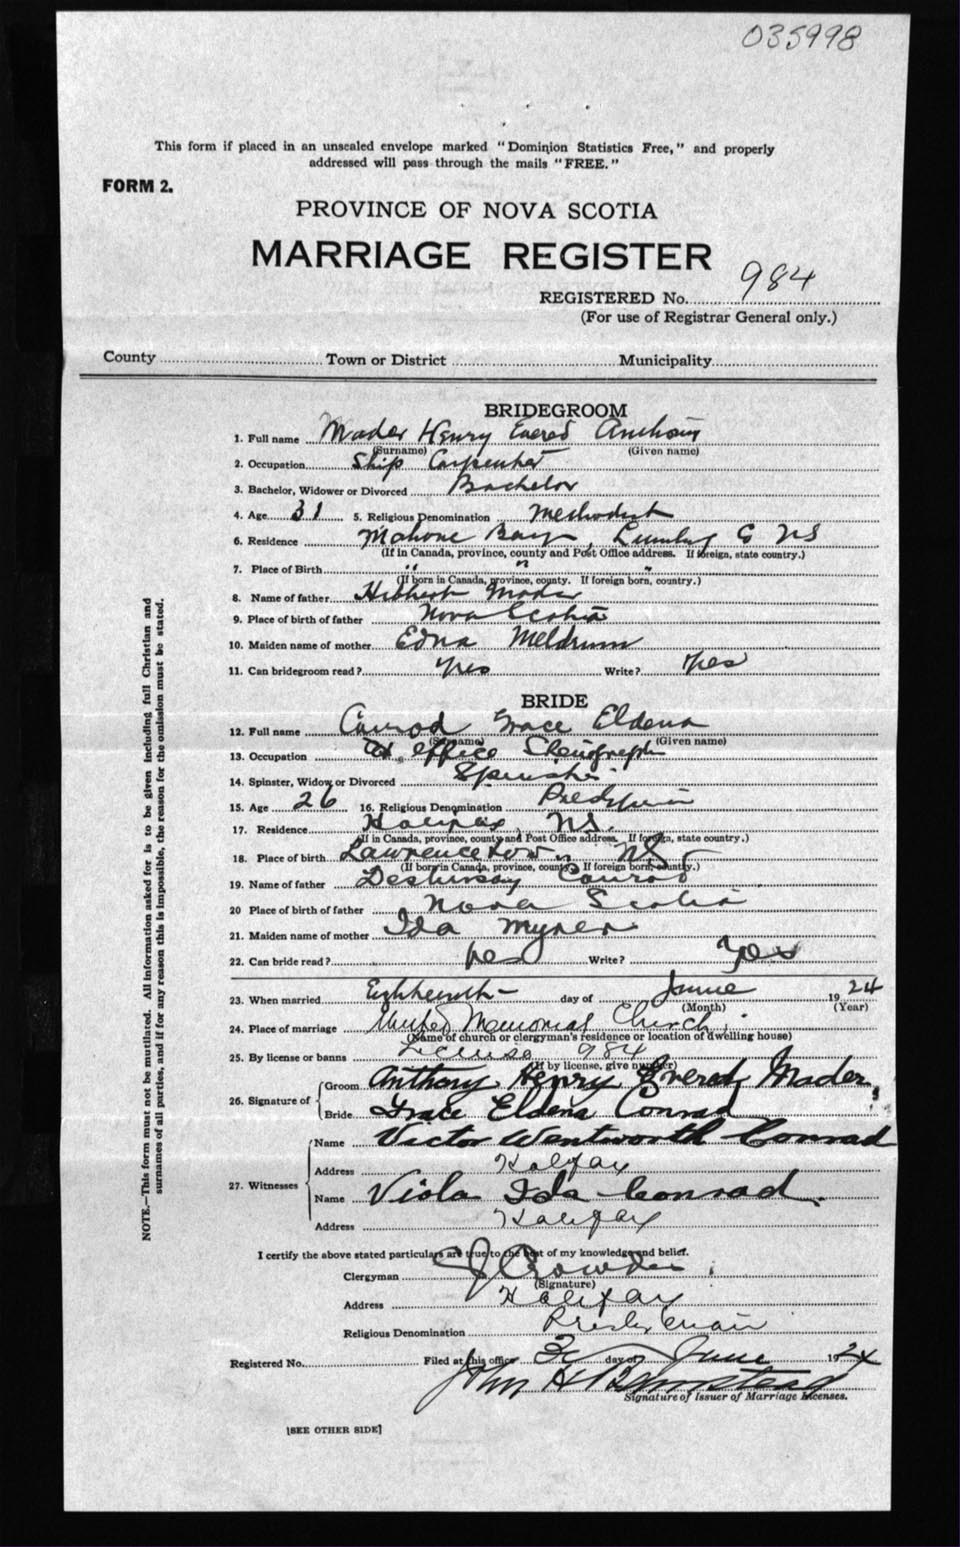 035998
This form if placed in an unsealed envelope marked "Dominion Statistics Free," and properly
addressed will pass through the mails "FREE."
FORM 2.
PROVINCE OF NOVA SCOTIA
MARRIAGE REGISTER
REGISTERED No. 984
(For use of Registrar General only.)
County Town or District Municipality
BRIDEGROOM
1. Full name Mader Henry Evered Anthony
(Surname) (Given name)
2. Occupation Ship Carpenter
3. Bachelor, Widower or Divorced Bachelor
4. Age 31 5. Religious Denomination Methodist
6. Residence Mahone Bay, Lunbg Co NS
(If in Canada, province, county and Post Office address. If foreign, state country.)
7. Place of Birth " " "
(If born in Canada, province, county. If foreign born, country.)
8. Name of father Hibbert Mader
9. Place of birth of father Nova Scotia
10. Maiden name of mother Edna Meldrum
11. Can bridegroom read? yes Write? yes
BRIDE
12. Full name Conrod Grace Eldena
(Surname) (Given name)
13. Occupation office
14. Spinster, Widow or Divorced Spinster
15. Age 26 16. Religious Denomination
17. Residence Halifax, NS.
(If in Canada, province, county and Post Office address. If foreign, state country.)
18. Place of birth Lawrencetown NS
(If born in Canada, province, county. If foreign born, country.)
19. Name of father Conrod
20 Place of birth of father Nova Scotia
21. Maiden name of mother Ida Myrer
22. Can bride read? yes Write? yes
23. When married Eighteenth day of June 1924
(Month) (Year)
24. Place of marriage United Memorial Church
(Name of church or clergyman's residence or location of dwelling house)
25. By license or banns License 984
(If by license, give number)
26. Signature of
Groom Anthony Henry Evered Mader
Bride Grace Eldena Conrad
27. Witnesses
Name Victor Wentworth Conrad
Address Halifax
Name Viola Ida Conrad.
Address Halifax
I certify the above stated particulars are true to the best of my knowledge and belief.
Clergyman CJ Crowdis
(Signature)
Address Halifax
Religious Denomination Presbyterian
Registered No. Filed at this office day of June 1924
John H
Signature of Issuer of Marriage Licenses.
[SEE OTHER SIDE]
NOTE.—This form must not be mutilated. All information asked for is to be given including full Christian and
surnames of all parties, and if for any reason this is impossible, the reason for the omission must be stated.